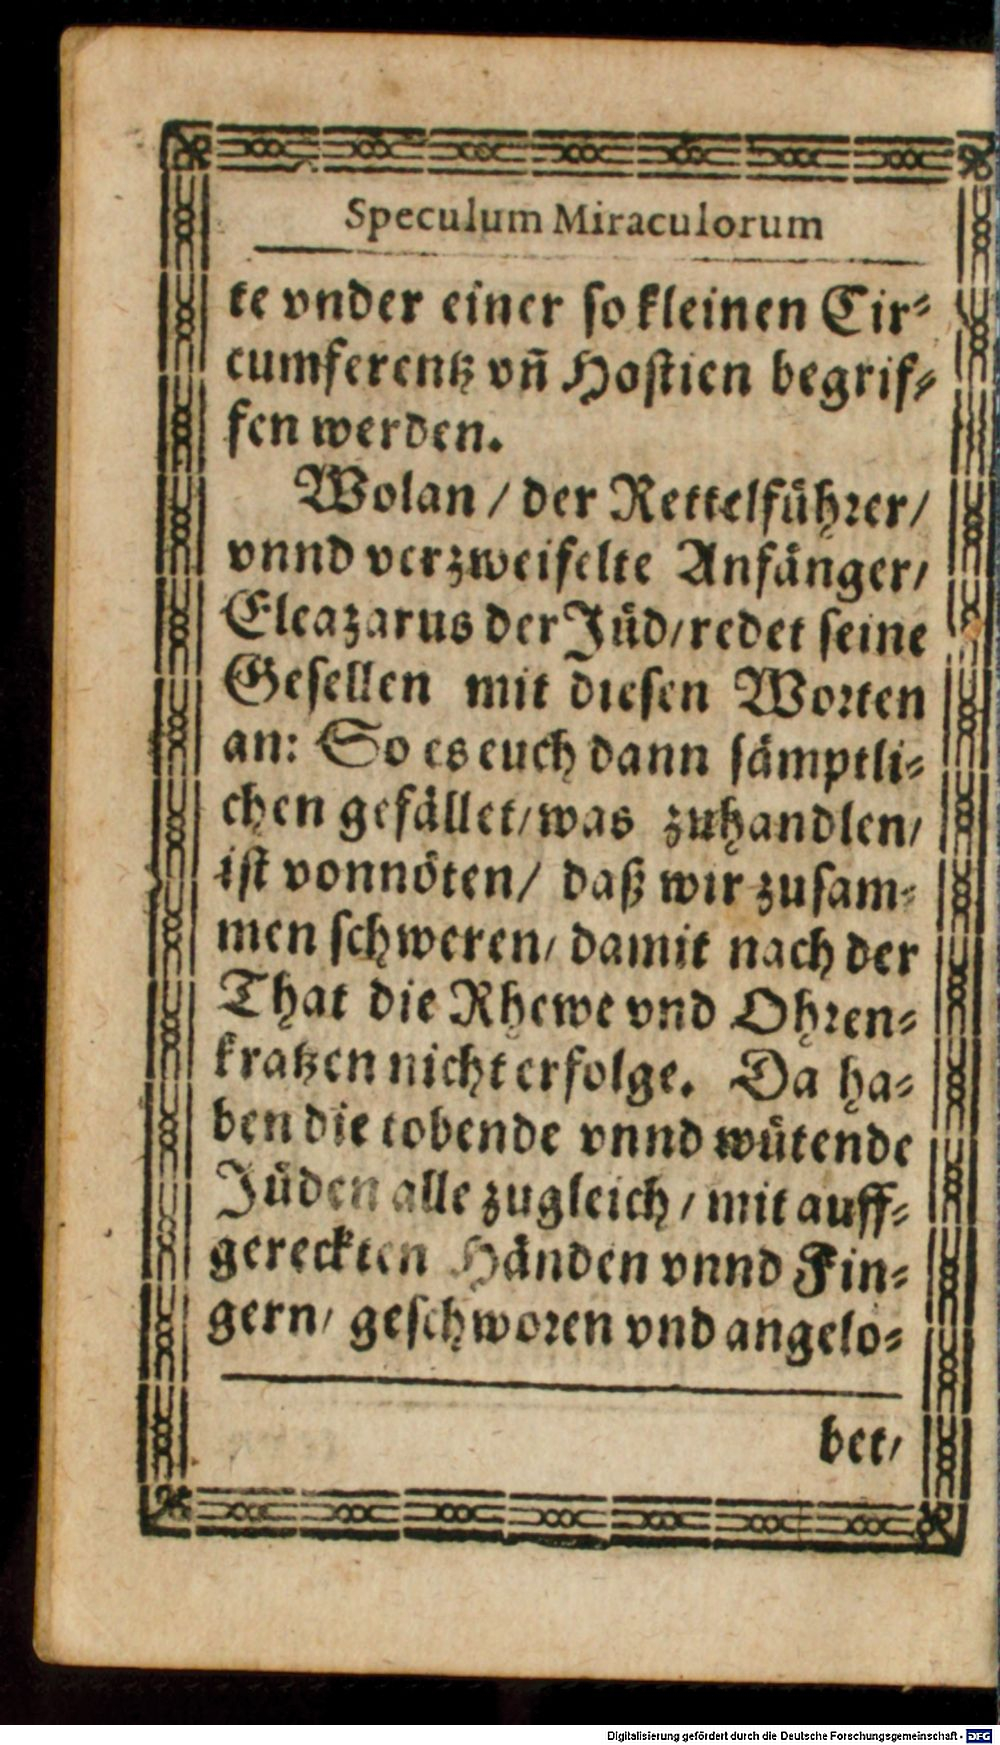 Speculum Miraculorum
te vnder einer so kleinen Cir⸗
cumferentz vñ Hostien begrif⸗
fen werden.
Wolan / der Rettelführer /
vnnd verzweifelte Anfänger /
Eleazarus der Jüd / redet seine
Gesellen mit diesen Worten
an: So es euch dann sämptli⸗
chen gefället / was zuhandlen /
ist vonnöten / daß wir zusam⸗
men schweren / damit nach der
That die Rhewe vnd Ohren⸗
kratzen nicht erfolge. Da ha⸗
ben die tobende vnnd wütende
Jüden alle zugleich / mit auff⸗
gereckten Händen vnnd Fin⸗
gern / geschworen vnd angelo⸗
bet /
Digitalisierung gefördert durch die Deutsche Forschungsgemeinschaft - DFG